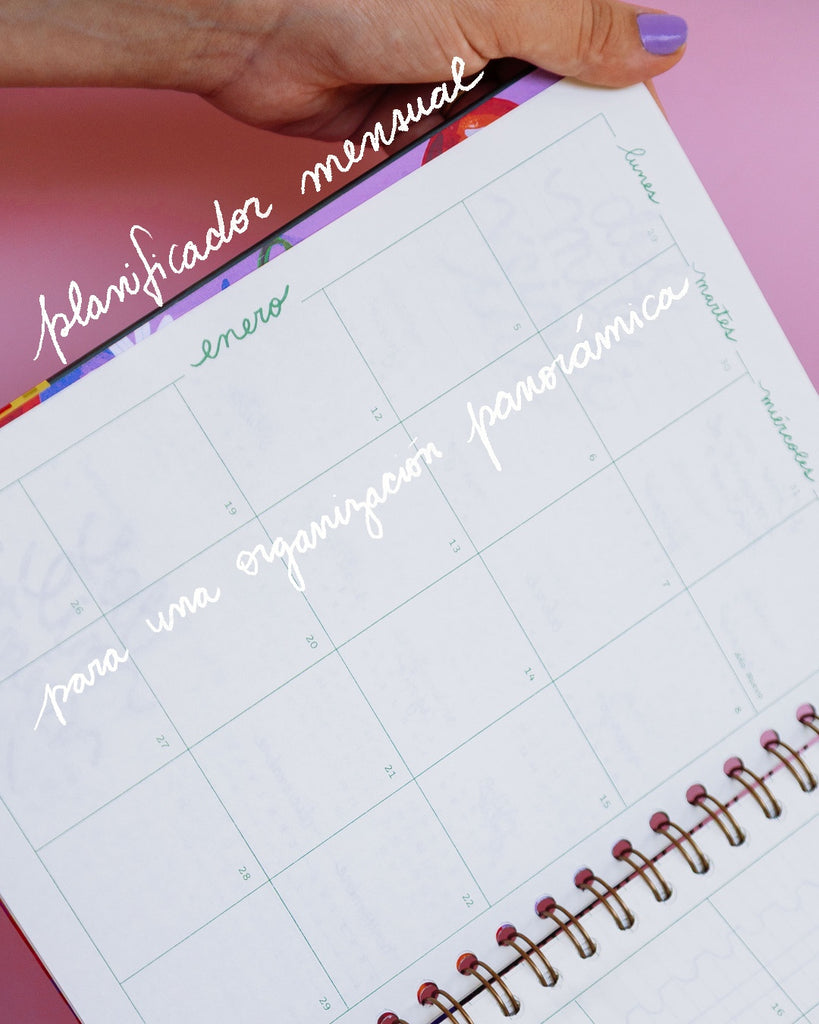 planificador mensual
enero
lunes
martes
miércoles
para una organización panorámica
29
5
12
19
26
30
6
13
20
27
31
7
14
21
28
año nuevo
8
15
22
29
16